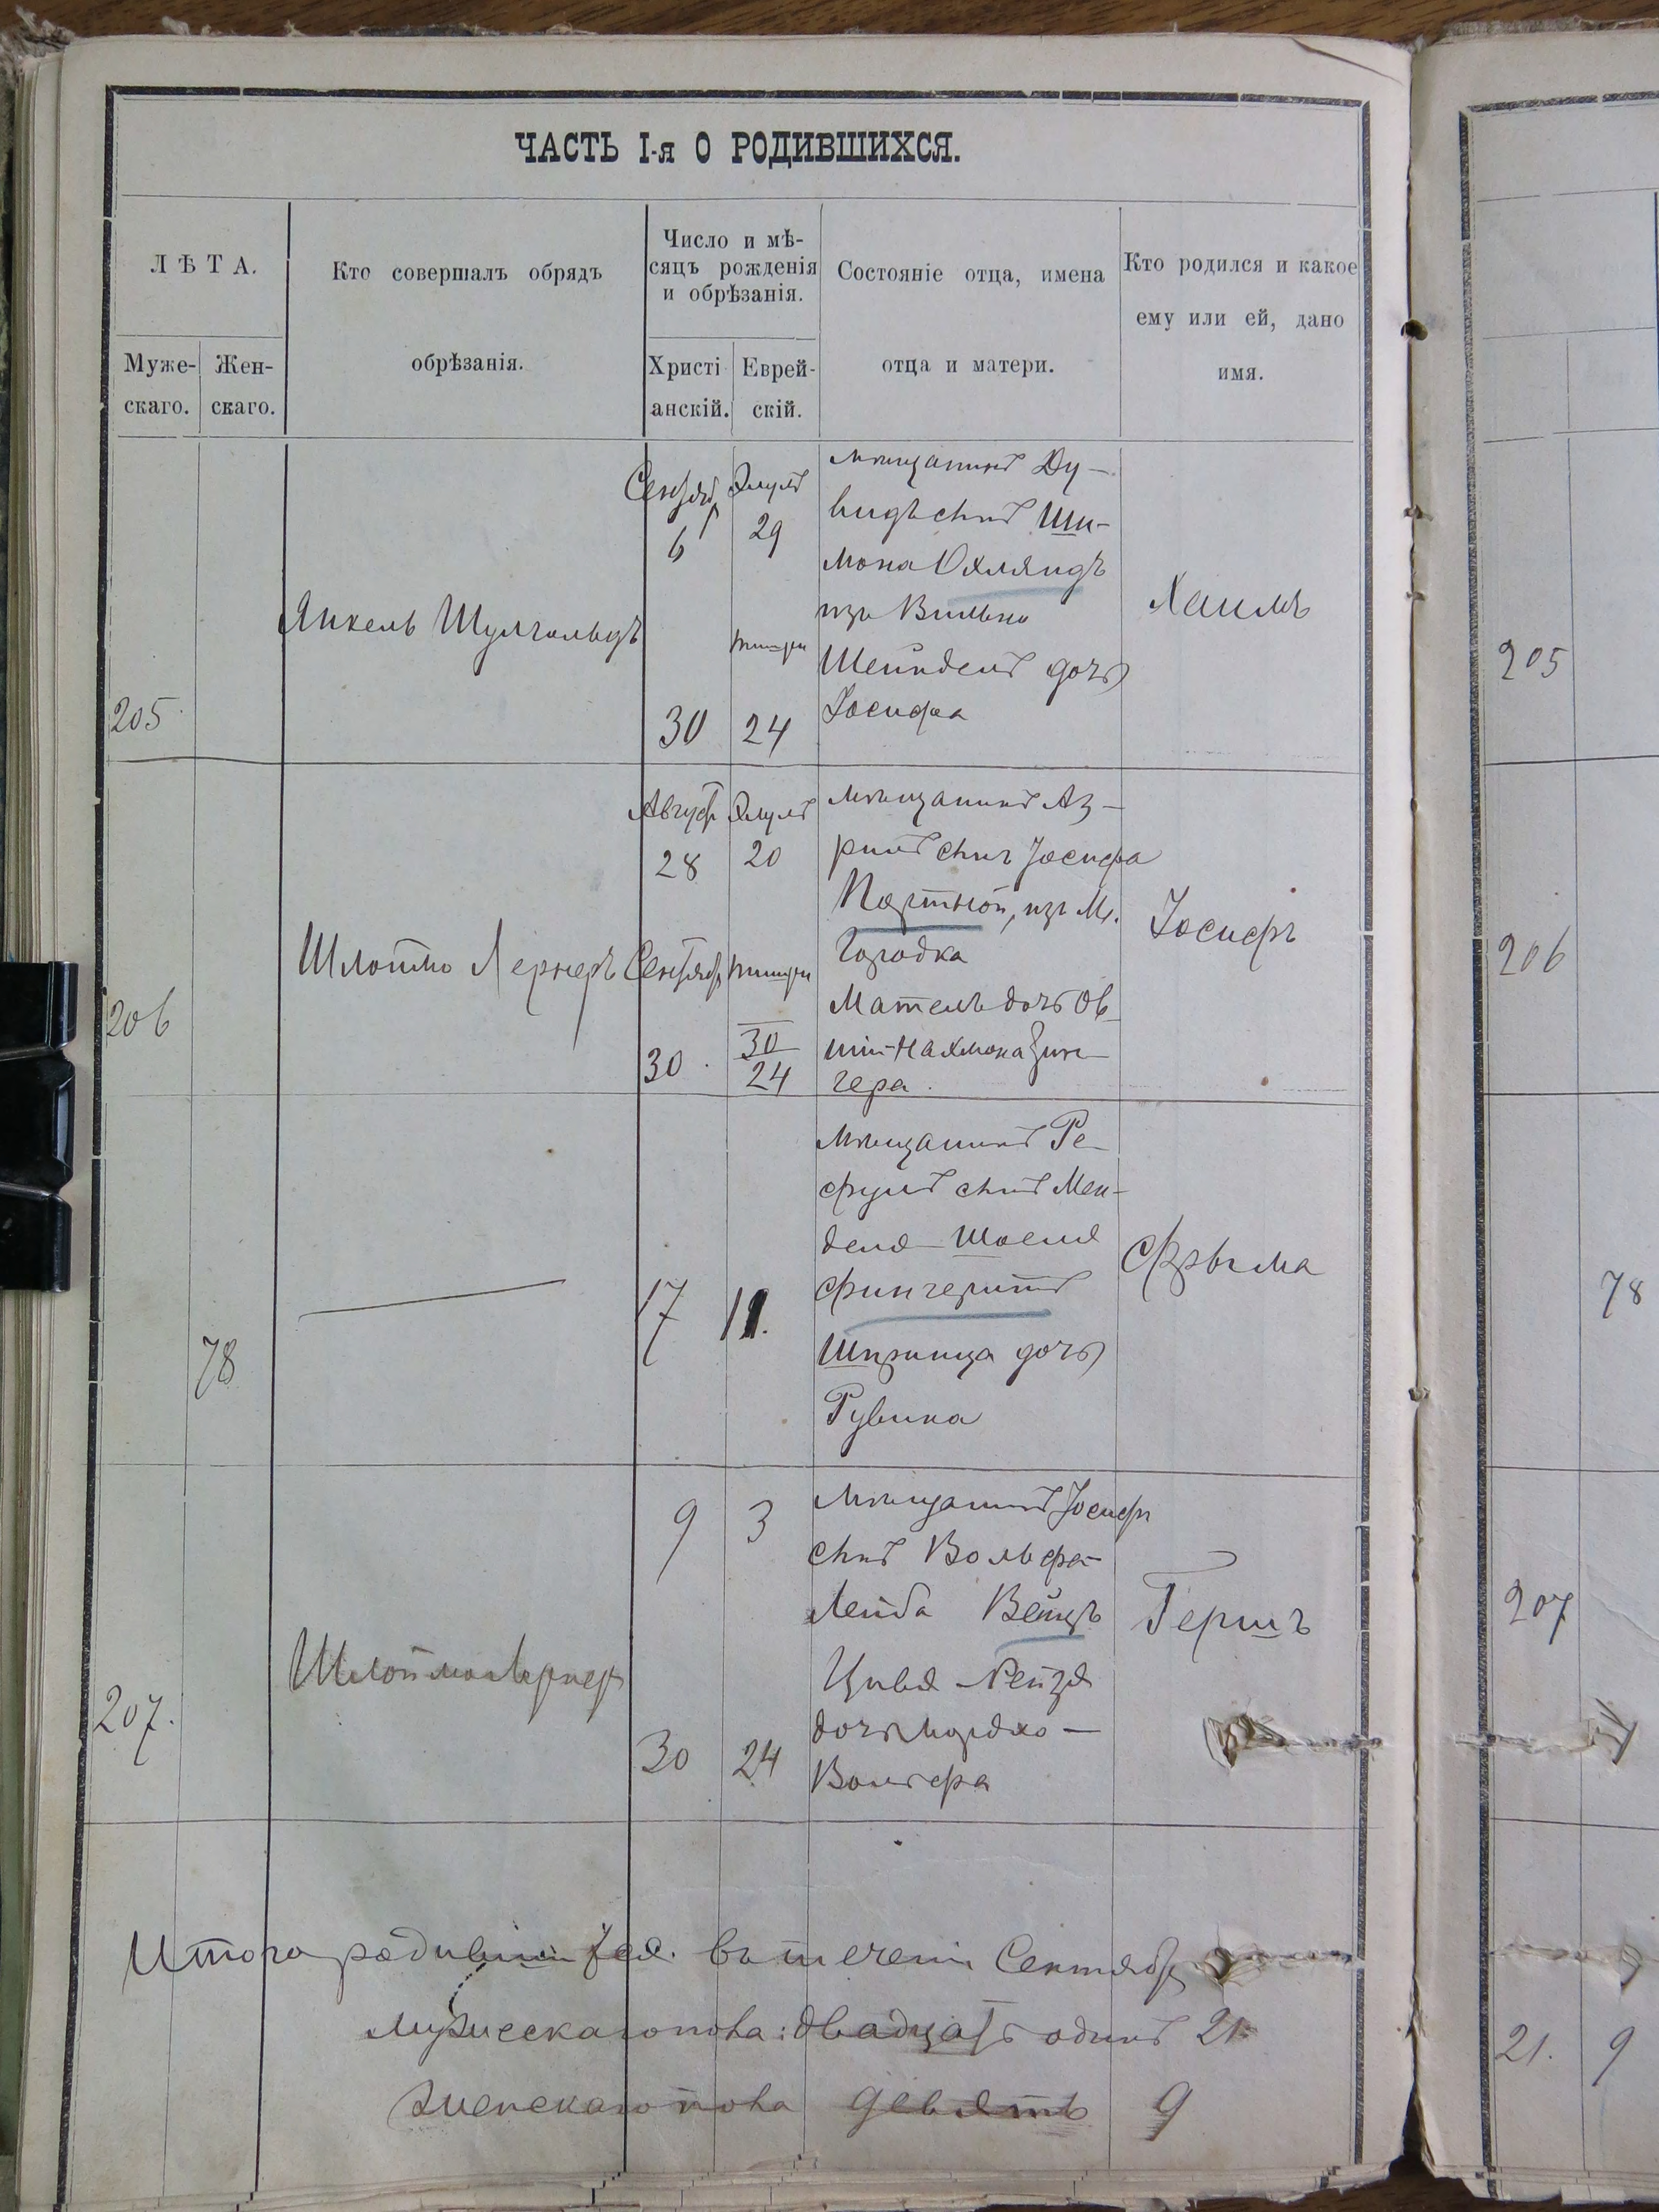 ЧАСТЬ I-я О РОДИВШИХСЯ.
ЛѢТА.
Муже-
скаго.
Жен-
скаго.
Кто совершалъ обрядъ
обрѣзанія.
Число и мѣ-
сяцъ рожденія
и обрѣзанія.
Христі
анскій.
Еврей-
скій.
Состояніе отца, имена
отца и матери.
Кто родился и какое
ему или ей, дано
имя.
205
Янкель
Сентяб
6
30
Элулъ
29
тишри
24
мѣщанинъ Ду-
видъ сынъ Ши-
мона Охляндъ
изъ Вильно
Шейндель дочь
Іосифа
Хаимъ
206
Шлоймо Лернеръ
Август
28
Сентябр
30
Элулъ
20
тишри
30
24
мѣщанинъ Аз-
рилъ сынъ Іосифа
Портной, изъ М.
Городка
Матель дочь Ов
шiи-Нахмона Зин-
гера.
Іосифъ
78
17
11.
мѣщанинъ Ре-
фулъ сынъ Мен-
деля-Шоеля
Фингерутъ
Шпринца дочь
Рувина
Фрыма
207.
Шлоймо Лернер
9
30
3
24
Мѣщанинъ Іосифъ
сынъ Вольфа-
Лейба Вейцъ
Цивья Рейзя
дочь Мордхо-
Вольфа
Гершъ
Итого родившихся въ течени Сентябр
мужескаго пола: двадцать одинъ 21
женскаго пола девять 9
205
206
78
207
21. 9